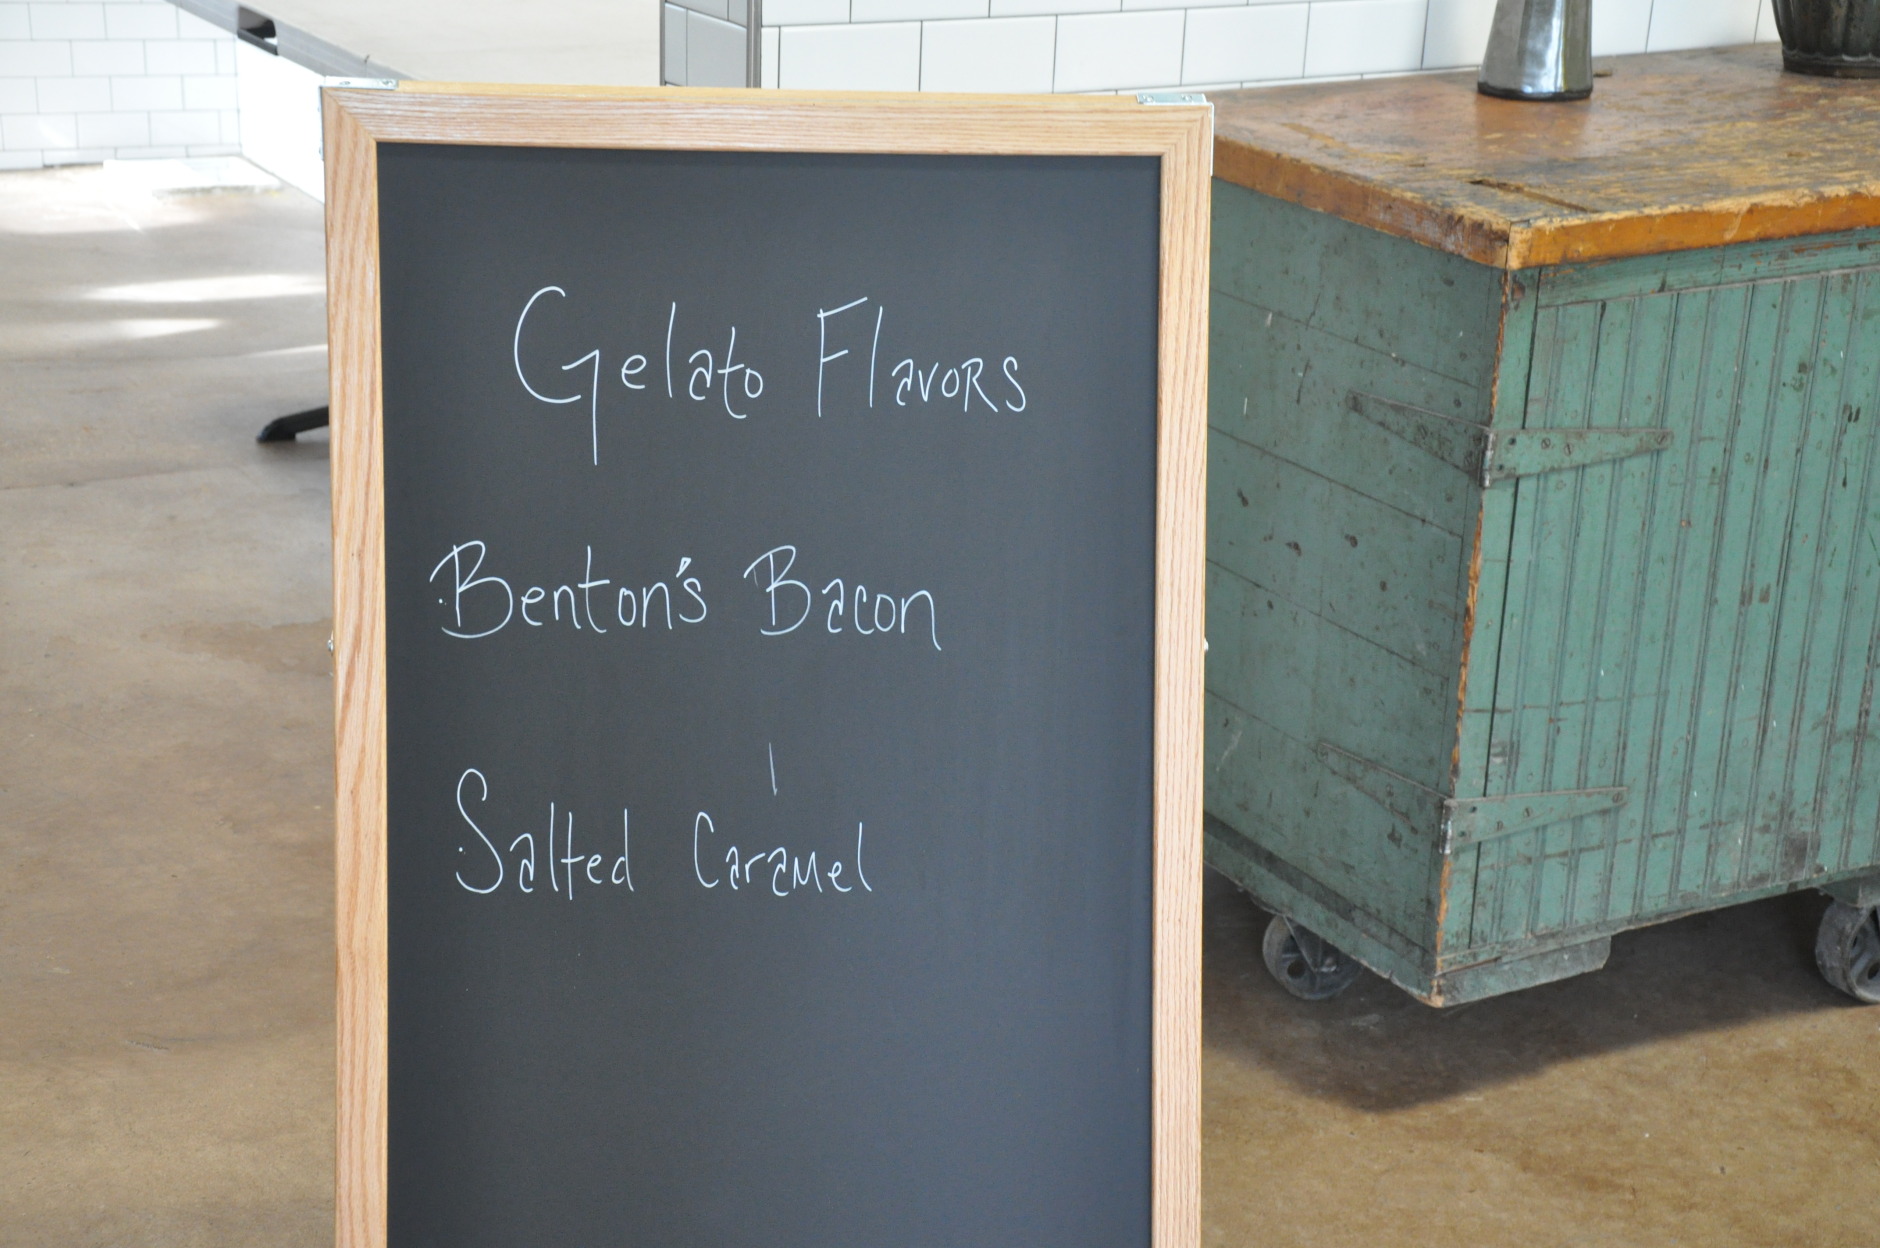 Gelato Flavors
Benton's Bacon
Salted Caramel